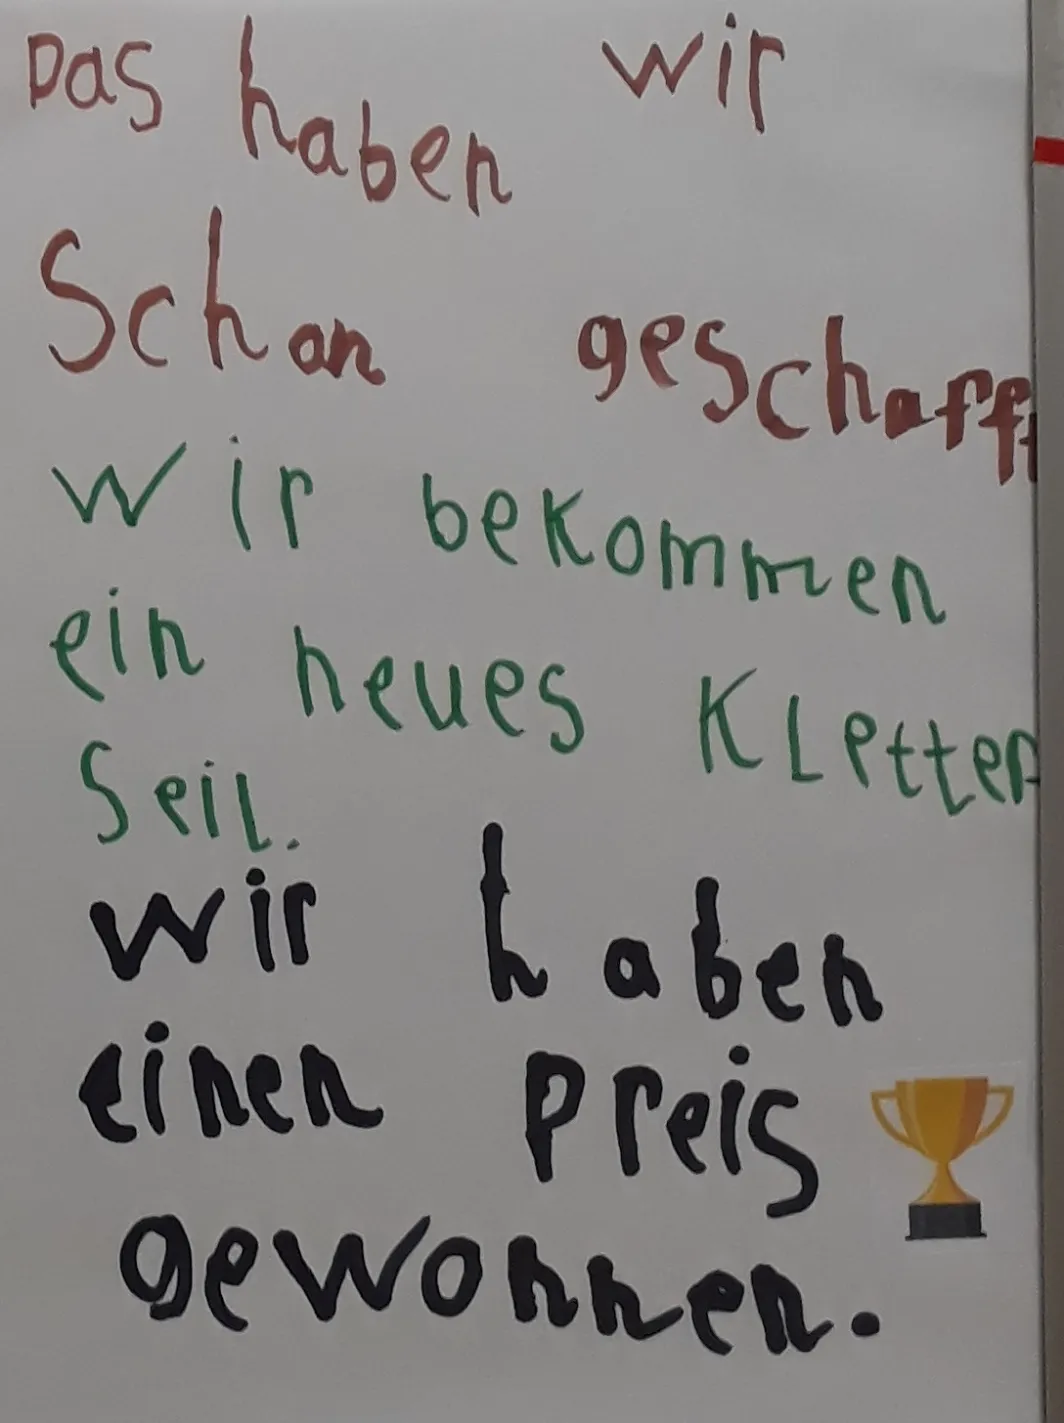 Das haben wir
Schon geschafft
wir bekommen
ein neues Kletter
Seil.
wir haben
einen Preis
gewonnen.